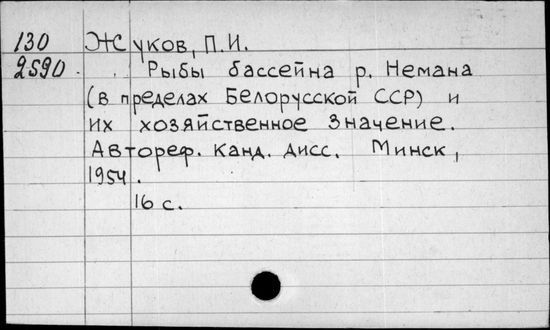 130 Жуков, П.И.
2590. Рыбы бассейна р. Немана
(в пределах Белорусской ССР) и
их хозяйственное значение.
Автореф. канд. дисс. Минск,
1954.
16 с.